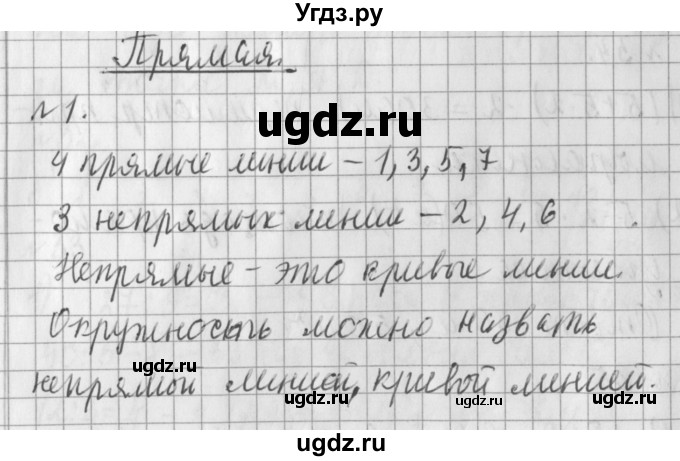 Угдз.ру
Прямая.
№1.
ugdz.ru
4 прямые линии – 1, 3, 5, 7
3 непрямых линии – 2, 4, 6
Непрямые – это кривые линии.
ugdz.ru
Окружность можно назвать
ugdz.ru ugdz.ru
непрямой линией, кривой линией.
ugdz.ru